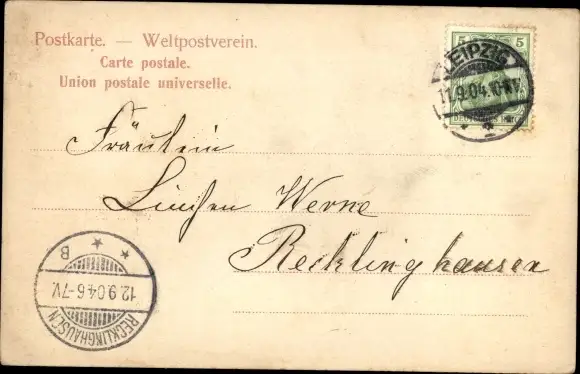 Postkarte. — Weltpostverein.
Carte postale.
Union postale universelle.
5 5
LEIPZIG
11.9.04.10-11V.
DEUTSCHES REICH
Fräulein
Linchen Werne
Recklinghausen
B
12.9.04.6-7V.
RECKLINGHAUSEN